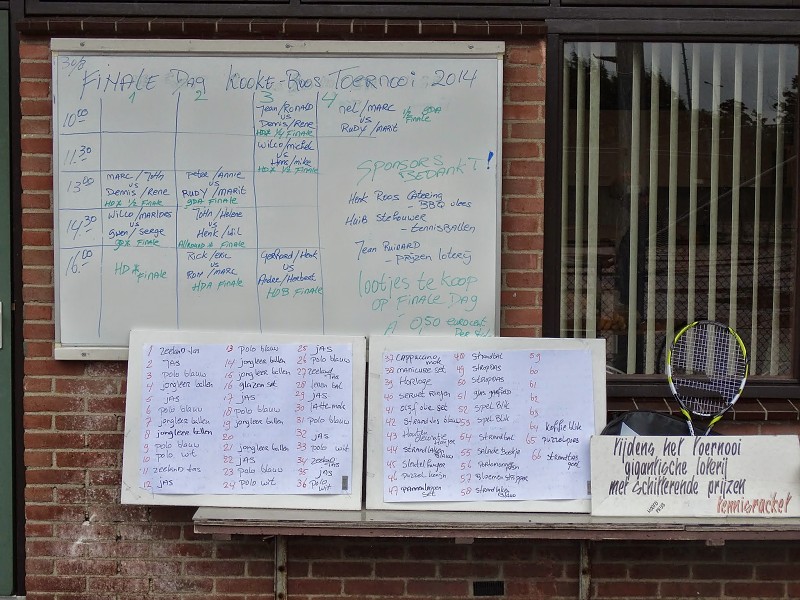 30/8
FINALE DAG KOOKE-ROOS TOERNOOI 2014
1 2 3 4
10.00
Jean/RONALD
vs
Dennis/Rene
HDX ½ Finale
nel/MARC
vs
RUDY/MARIT
½ GDA
Finale
11.30
WILCO/michel
vs
Hans/mike
HDX ½ Finale
13.00
MARC/John
vs
Dennis/Rene
HDX ½ Finale
Peter/Annie
vs
RUDY/MARIT
GDA Finale
14.30
WILCO/marloes
vs
Gwen/Serge
Finale
John/Helene
vs
Henk/Wil
Finale
16.00
HD* Finale
Rick/eric
vs
Rom/MARC
HDA Finale
Gerhard/Henk
vs
Andre/Herbert
HDB Finale
SPONSORS
BEDANKT!
Henk Roos Catering
- BBQ vlees
Huib Stehouwer
- tennisballen
Jean Ruinard
- prijzen loterij
lootjes te koop
op FINALE DAG
À 0,50 eurocent
1 zeeland tas
2 JAS
3 polo blauw
4 jongleer ballen
5 JAS
6 polo blauw
7 jongleer ballen
8 jongleer ballen
9 polo blauw
10 polo wit
11 zeeland tas
12 JAS
13 polo blauw
14 jongleer ballen
15 jongleer ballen
16 glazen set
17 JAS
18 polo blauw
19 jongleer ballen
20
21 jongleer ballen
22 JAS
23 polo blauw
24 polo wit
25 JAS
26 polo blauw
27 zeeland tas
28 bal
29 JAS
30 mok
31 polo blauw
32 JAS
33 polo wit
34 zeeland tas
35 JAS
36 polo wit
37 cappuccino mok
38 manicure set
39 Horloge
40 servet ringen
41 olijfolie set
42 strandtas blauw
43 Houten decoratie
44 strandlaken blauw
45 sleutel hanger
46 puzzel
47 pannenlappen set
48 strandbal
49 strandtas
50 strandtas
51
52 spel blik
53 spel blik
54 strandbal
55
56
57 Bloemen
58 strandlaken blauw
59
60
61
62
63
64 koffie blik
65 puzzel
66 strandtas geel
Tijdens het toernooi
gigantische loterij
met schitterende prijzen
tennisracket